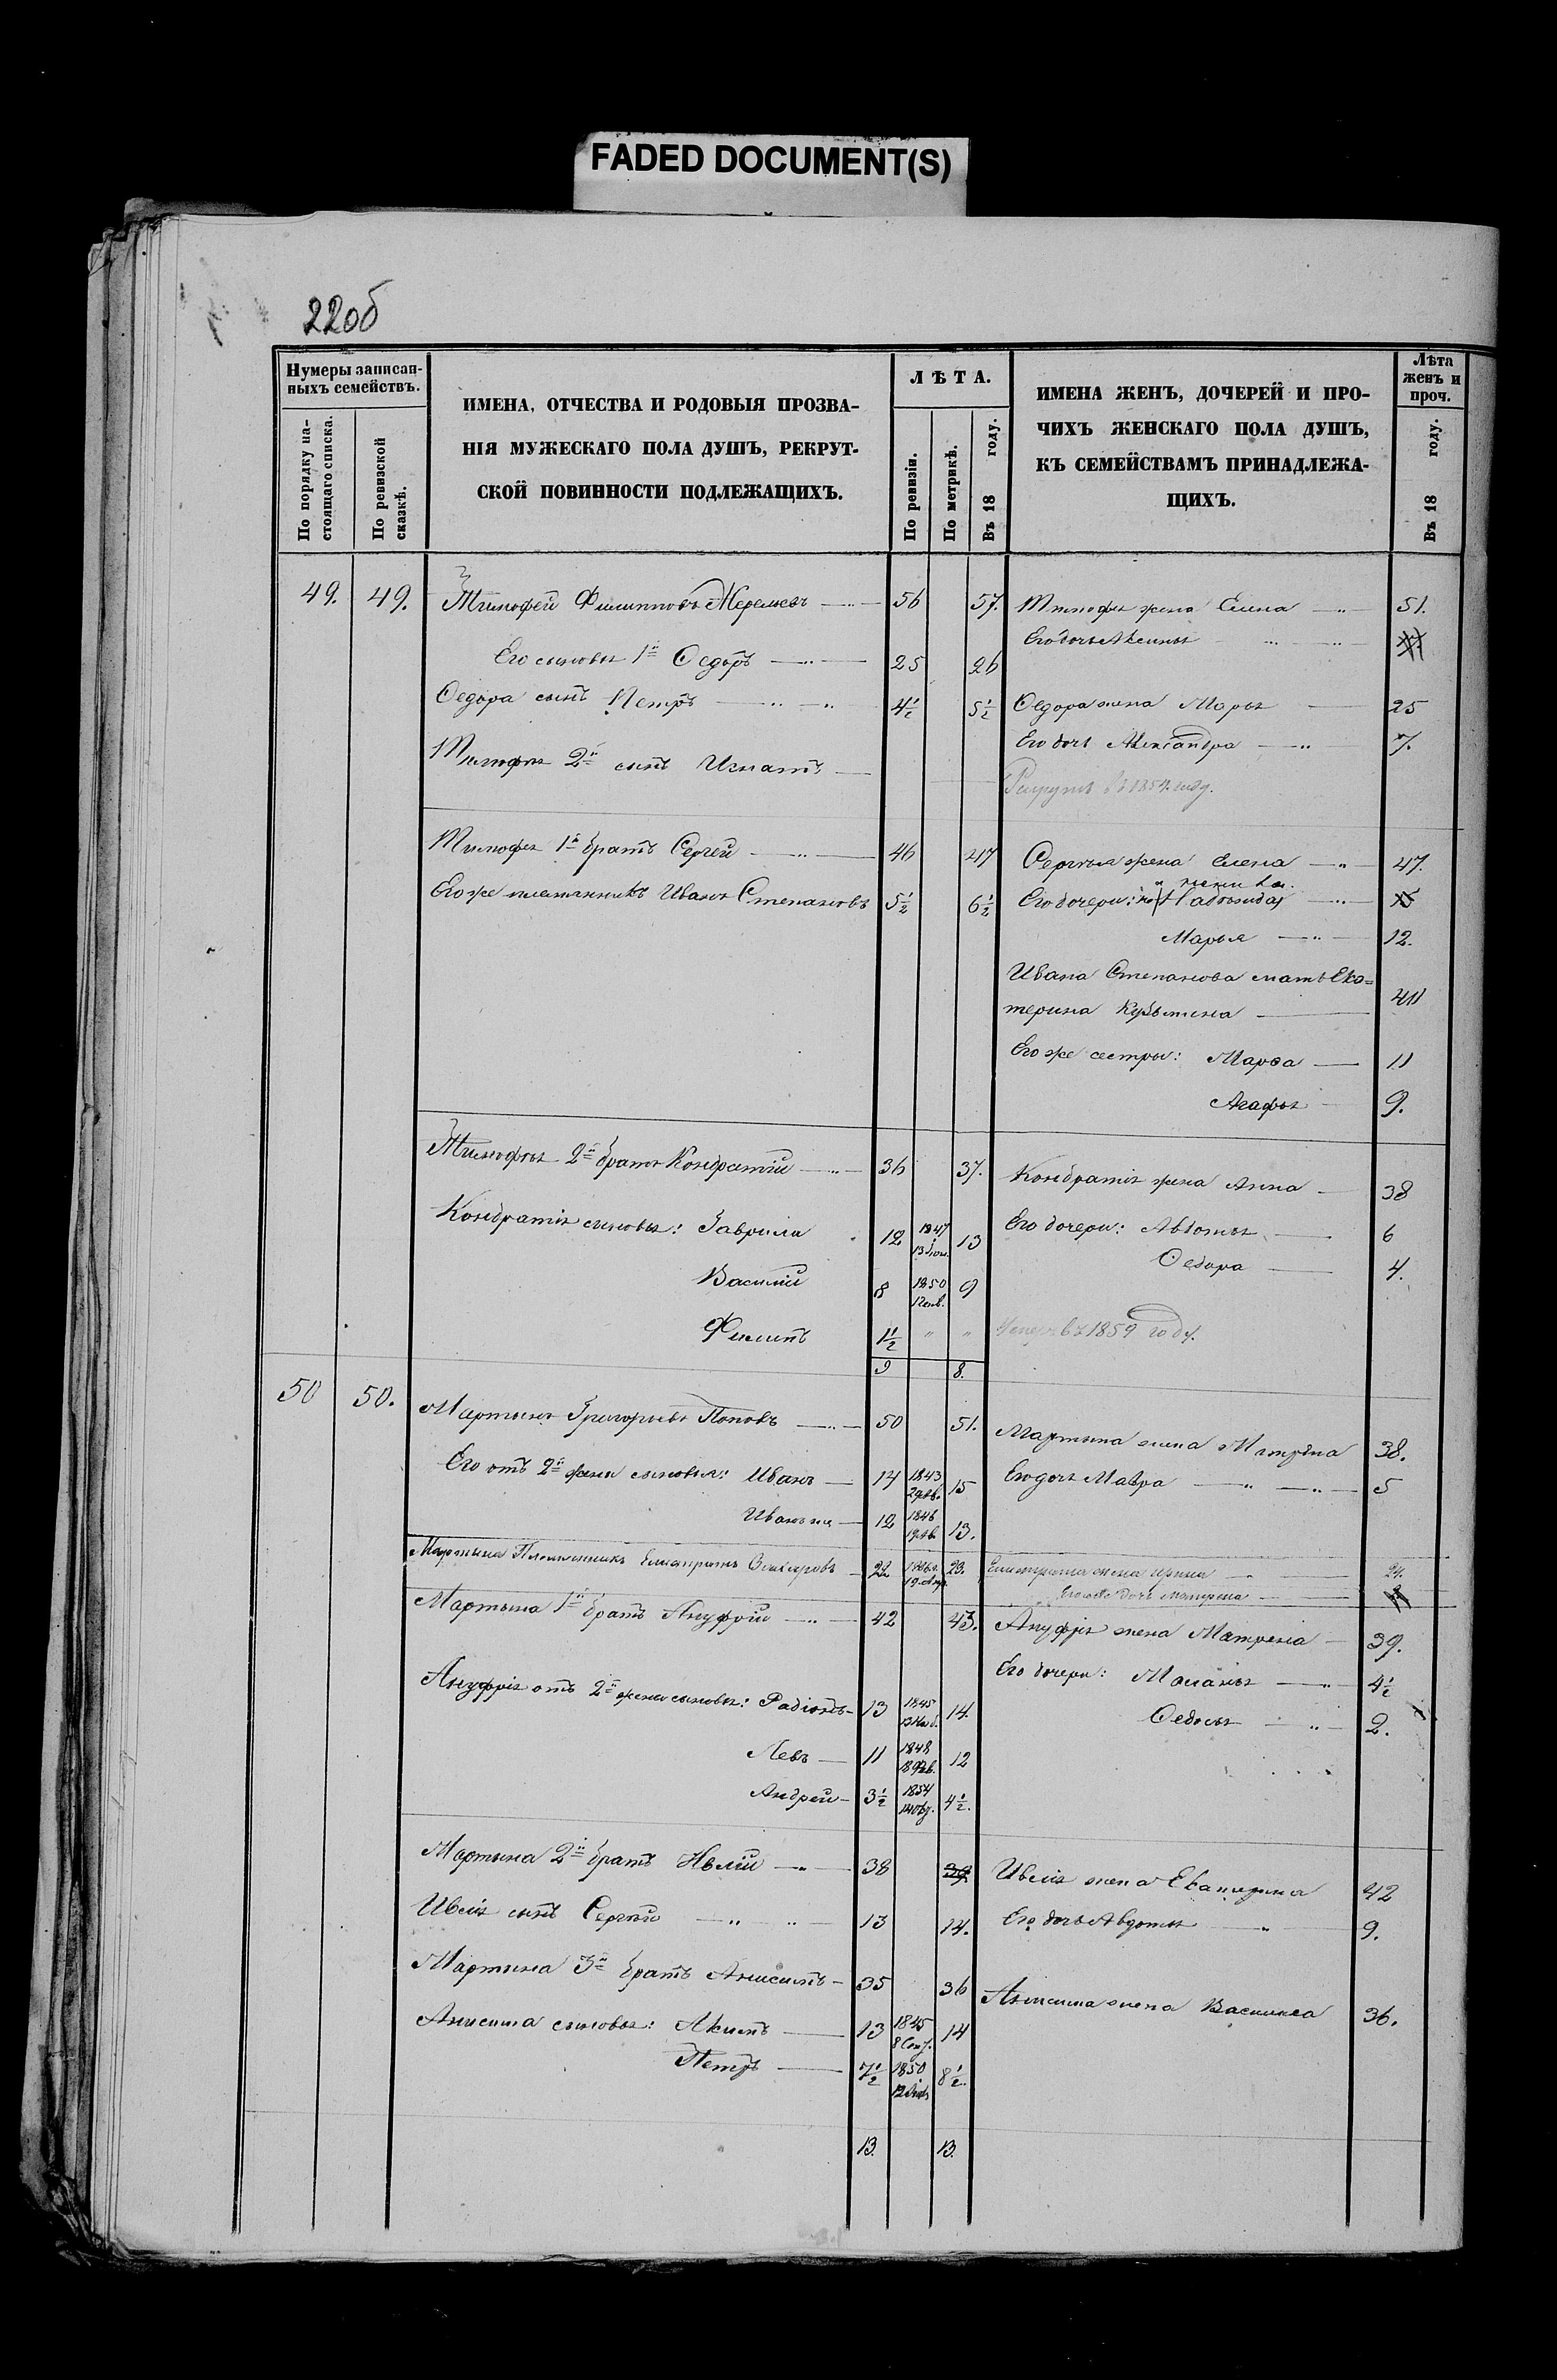 FADED DOCUMENT(S)
220б
Нумеры записан-
ныхъ семействъ.
По порядку на-
стоящаго списка.
По ревизской
сказкѣ.
ИМЕНА, ОТЧЕСТВА И РОДОВЫЯ ПРОЗВА-
НІЯ МУЖЕСКАГО ПОЛА ДУШЪ, РЕКРУТ-
СКОЙ ПОВИННОСТИ ПОДЛЕЖАЩИХЪ.
ЛѢТА.
По ревизіи.
По метрикѣ.
Въ 18 году.
ИМЕНА ЖЕНЪ, ДОЧЕРЕЙ И ПРО-
ЧИХЪ ЖЕНСКАГО ПОЛА ДУШЪ,
КЪ СЕМЕЙСТВАМЪ ПРИНАДЛЕЖА-
ЩИХЪ.
Лѣта
женъ и
проч.
Въ 18 году.
49. 49. Тимофей Филипповъ 56 57. Тимофея жена Елена 51.
Его дочь Аксинья
Его сыновья 1й Федоръ 25 26
Федора сынъ Петръ 4½ 5½ Федора жена Марья 25
Его дочь Александра 7.
Тимофея 2й сынъ Игнатъ
Рекрутъ въ 1854 году.
Тимофея 1й братъ Сергей 46 47 Сергея жена Елена 47.
Его же племянникъ Иванъ Степановъ 5½ 6½ Его дочери:
Марья 12.
Ивана Степанова мать Ека=
терина Кузьмина 41
Его же сестры: Марфа 11
Агафья 9.
Тимофея 2й братъ Кондратій 36 37. Кондратія жена Анна 38
Кондратія сыновья: Гаврила 12 1847 13 13 Его дочери: Авдотья 6
Федора 4.
Василій 8 1850 9
Филипъ 1½ " " Умеръ въ 1859 году.
9 8.
50 50. Мартынъ Григорьевъ Поповъ 50 51. Мартына жена Матрена 38.
Его отъ 2й жены сыновья: Иванъ 14 1843 15 Его дочь Мавра 5
Иванъ же 12 1846 13.
Мартына Племянникъ Елистратъ 22 23. Елистрата жена Ирина 24.
Его же дочь Матрена
Мартына 1й братъ Ануфрій 42 43. Ануфрія жена Матрена 39.
Ануфрія отъ 2й жены сыновья: Радіонъ 13 1845 14. Его дочери: Маланья 4½
Федосья 2.
Левъ 11 1848 12
Андрей 3½ 1854 4½.
Мартына 2й братъ Ивлій 38 39 Ивлія жена Екатерина 42
Ивлія сынъ Сергѣй 13 14. Его дочь Авдотья 9.
Мартына 3й братъ Анисимъ 35 36 Анисима жена Василиса 36.
Анисима сыновья: Акимъ 13 1845 14
Петръ 7½ 1850 8½.
13. 13.